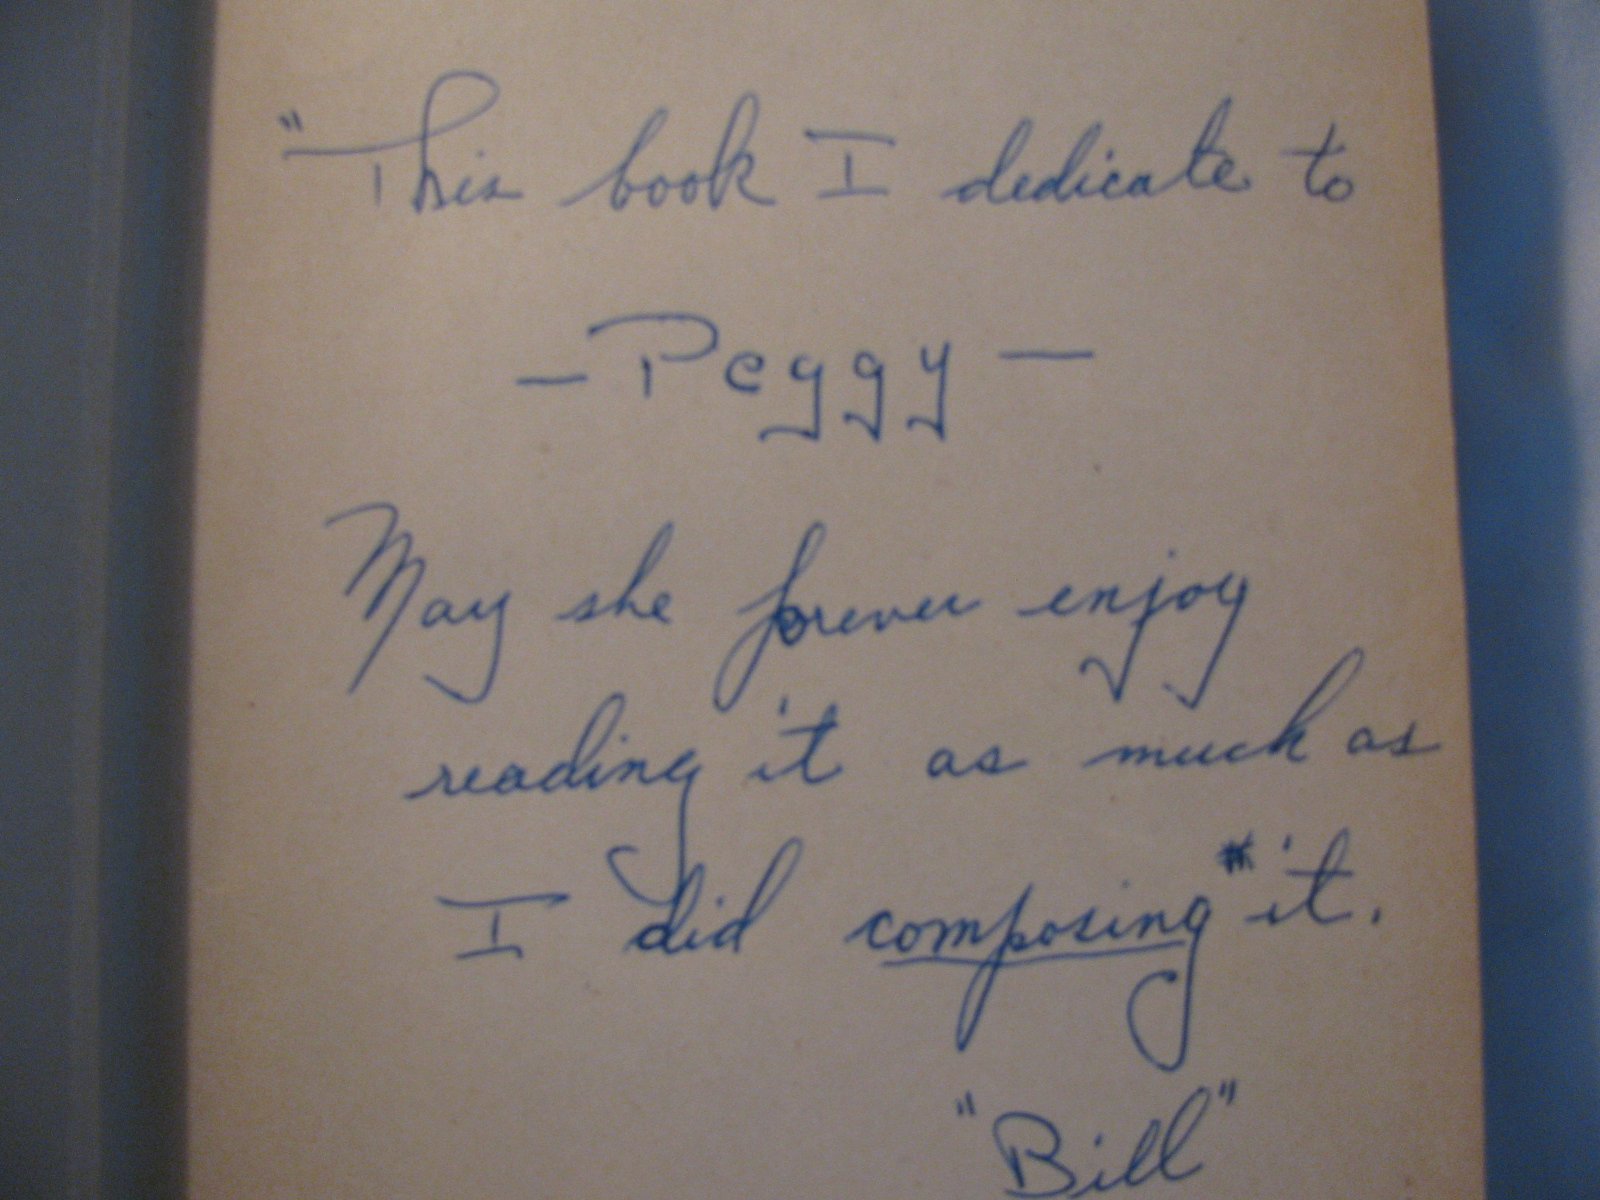 "This book I dedicate to
- Peggy -
May she forever enjoy
reading it as much as
I did composing* it.
"Bill"